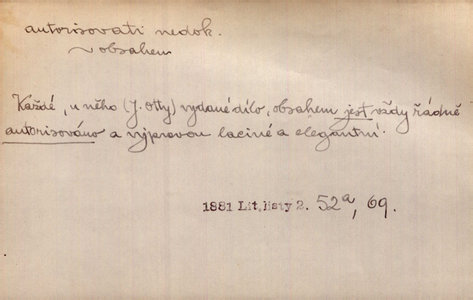 autorisovati nedok.
~ obsahem
Každé, u něho (J. Otty) vydané dílo, obsahem jest vždy řádně
autorisováno a výpravou laciné a elegantní.
1881 Lit. listy 2. 52a, 69.